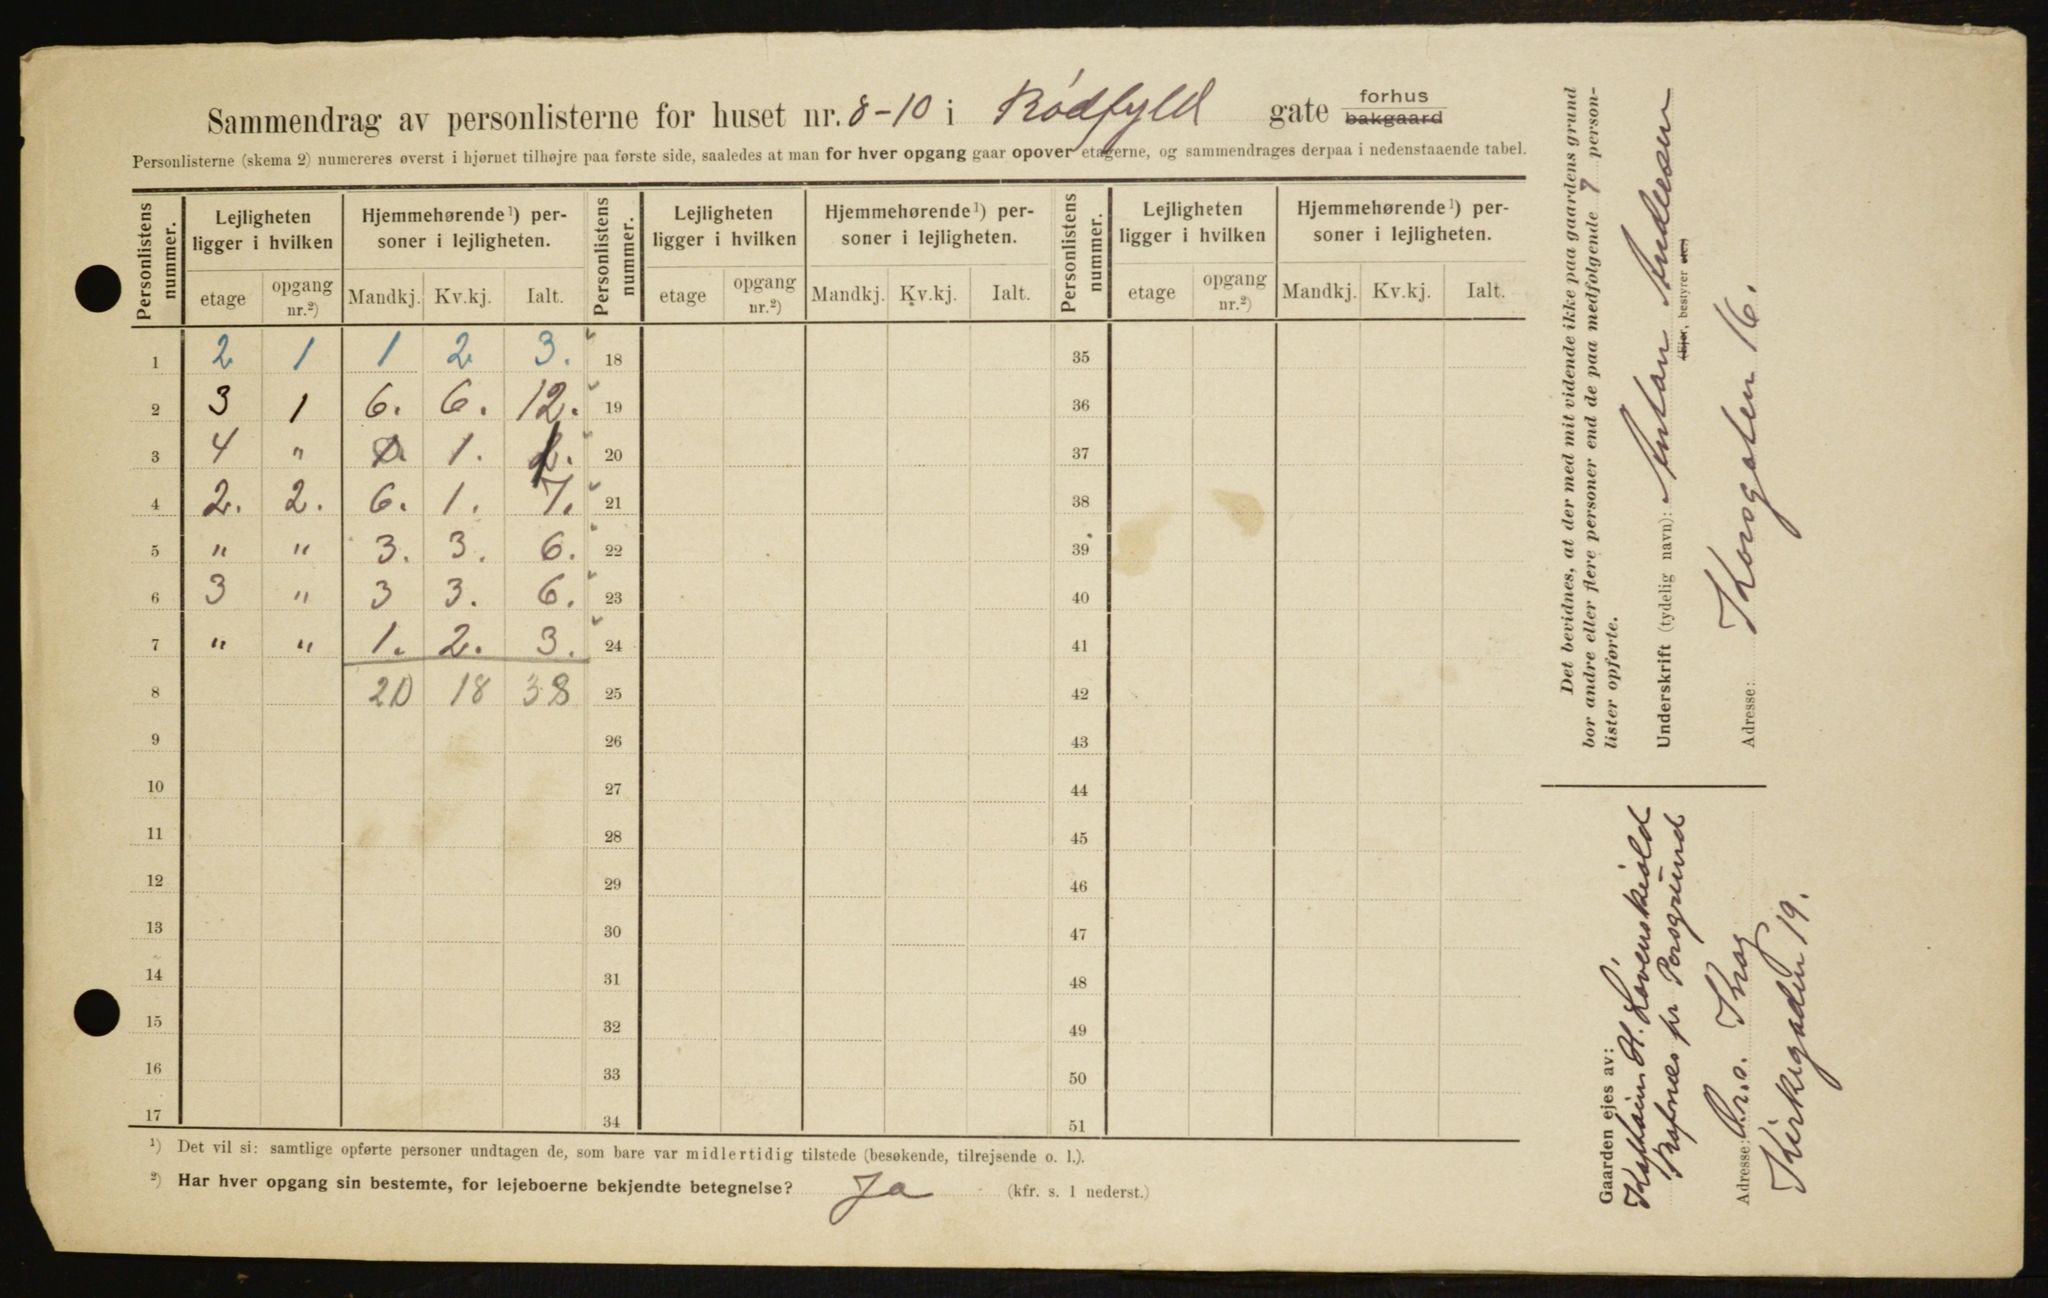 Sammendrag av personlisterne for huset nr. 8-10 i Rödfyld gate forhus bakgaard
Personlisterne (skema 2) numereres øverst i hjørnet tilhøjre paa første side, saaledes at man for hver opgang gaar opover etagerne, og sammendrages derpaa i nedenstaaende tabel.
Personlistens nummer. Lejligheten ligger i hvilken Hjemmehørende ¹) personer i lejligheten. Personlistens nummer. Lejligheten ligger i hvilken Hjemmehørende ¹) personer i lejligheten. Personlistens nummer. Lejligheten ligger i hvilken Hjemmehørende ¹) personer i lejligheten.
etage opgang nr.²) Mandkj. Kv.kj. Ialt. etage opgang nr.²) Mandkj. Kv.kj. Ialt. etage opgang nr.²) Mandkj. Kv.kj. Ialt.
1 2 1 1 2 3. 18 35
2 3 1 6. 6. 12. 19 36
3 4 " 1. 1. 20 37
4 2. 2. 6. 1. 7. 21 38
5 " " 3. 3. 6. 22 39
6 3 " 3 3. 6. 23 40
7 " " 1. 2. 3. 24 41
8 20 18 38 25 42
9 26 43
10 27 44
11 28 45
12 29 46
13 30 47
14 31 48
15 32 49
16 33 50
17 34 51
¹) Det vil si: samtlige opførte personer undtagen de, som bare var midlertidig tilstede (besøkende, tilrejsende o. l.).
²) Har hver opgang sin bestemte, for lejeboerne bekjendte betegnelse? Ja (kfr. s. 1 nederst.)
Det bevidnes, at der med mit vidende ikke paa gaardens grund
bor andre eller flere personer end de paa medfølgende 7 person-
lister opførte.
Underskrift (tydelig navn): Anton Andersen
(Ejer, bestyrer etc.)
Adresse: Korsgaten 16.
Gaarden ejes av:
Kaptein H. Løvenskiold
Rafnæs pr Porsgrund
Adresse: O.r.s. Krag
Kirkegaden 19.